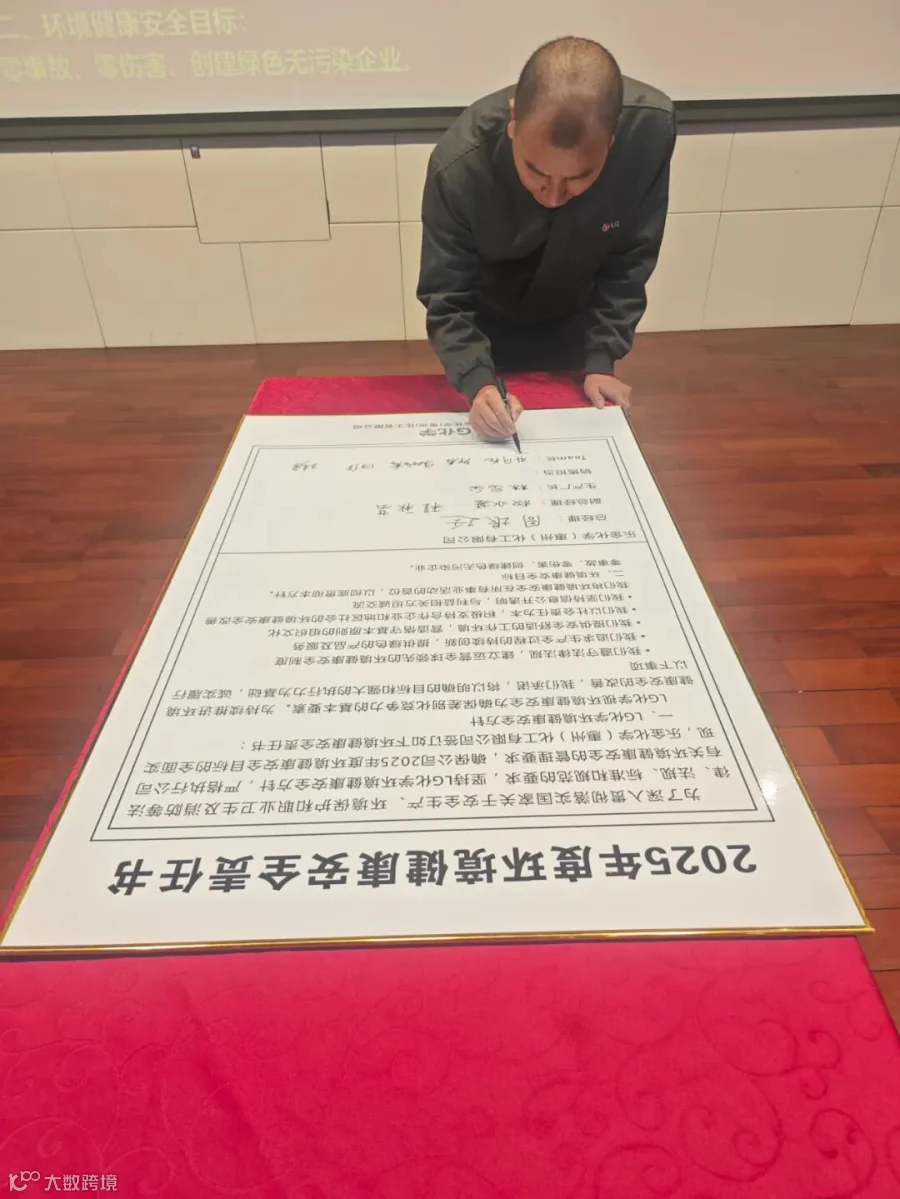 二、环境健康安全目标：
零事故、零伤害、创建绿色无污染企业。
LG
2025年度环境健康安全责任书
为了深入贯彻落实国家关于安全生产、环境保护和职业卫生及消防等法
律、法规、标准和规范的要求，坚持LG化学环境健康安全方针，严格执行公司
有关环境健康安全的管理要求，确保公司2025年度环境健康安全目标的全面实
现，乐金化学（惠州）化工有限公司签订如下环境健康安全责任书：
一、LG化学环境健康安全方针
LG化学视环境健康安全为确保差别化竞争力的基本要素。为持续推进环境
健康安全的改善，我们承诺，将以明确的目标和强大的执行力为基础，诚实履行
以下事项
• 我们遵守法律法规，建立运营全球领先的环境健康安全制度
• 我们追求生产全过程的持续创新，提供绿色的产品及服务
• 我们提供安全舒适的工作环境，营造恪守基本原则的组织文化
• 我们以社会责任为本，积极支持合作企业和地区社会的环境健康安全改善
• 我们坚持信息公开透明，与利益相关方坦诚交流
我们将环境健康安全在所有事业活动的首位，以彻底贯彻本方针。
二、环境健康安全目标
零事故、零伤害、创建绿色无污染企业。
乐金化学（惠州）化工有限公司
总经理：
副总经理：
生产厂长：
销售担当：
Team长：
G化学
化工有限公司
大数跨境